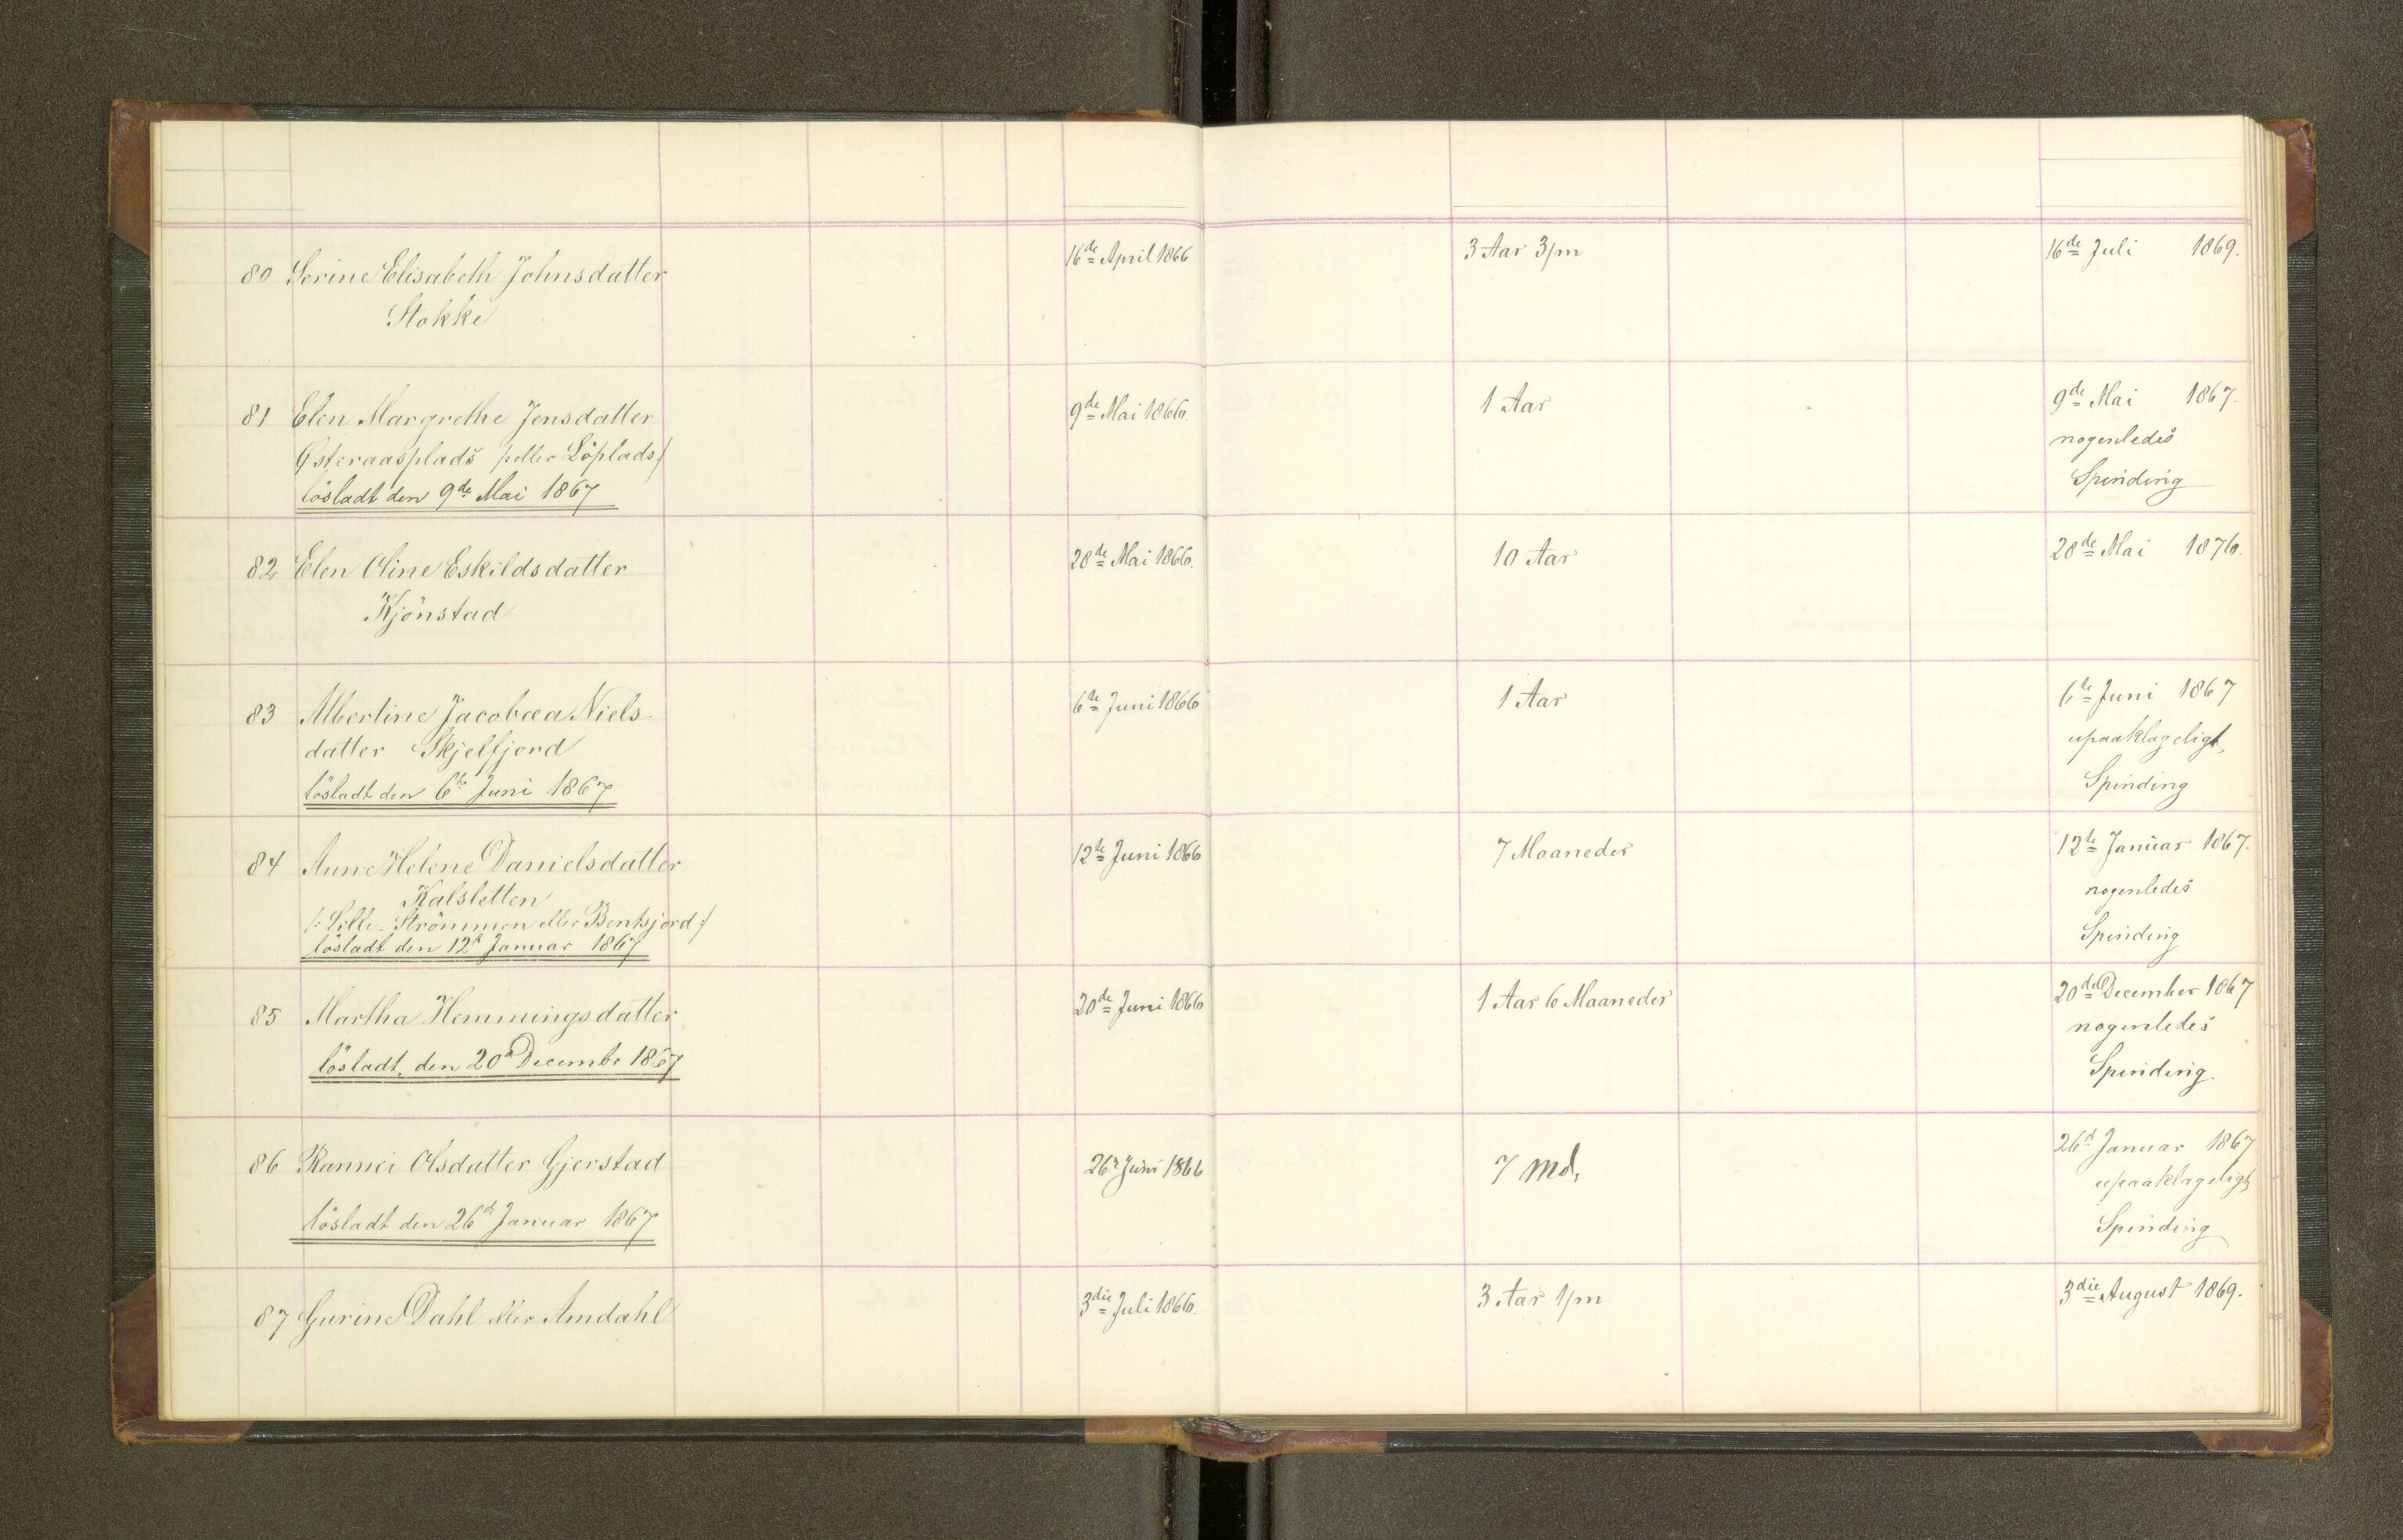 80 Serine Elisabeth Johnsdatter 16de April 1866 3 Aar 3/m 16de Juli 1869.
Stokke
81 Elen Margrethe Jensdatter 9de Mai 1866. 1 Aar 9de Mai 1867.
Østeraasplads /:eller Löplads:/ nogenledes
lösladt den 9de Mai 1867 Spinding
82 Elen Oline Eskildsdatter 28de Mai 1866. 10 Aar 28de Mai 1876.
Kjönstad
83 Albertine Jacobæa Niels- 6te Juni 1866 1 Aar 6te Juni 1867
datter Skjelfjord upaaklageligt
lösladt den 6te Juni 1867 Spinding
84 Anne Helene Danielsdatter 12te Juni 1866 7 Maaneder 12te Januar 1867.
Kalsletten nogenledes
/: Lille-Strömmen eller Bentsjord:/ Spinding
lösladt den 12t Januar 1867
85 Martha Hemmingsdatter 20de Juni 1866 1 Aar 6 Maaneder 20de December 1867
lösladt den 20d Decembr 1867 nogenledes
Spinding.
86 Rannei Olsdatter Gjerstad 26d Juni 1866 7 Md, 26d Januar 1867
lösladt den 26d Januar 1867 upaaklageligt
Spinding
87 Gurine Dahl eller Amdahl 3die Juli 1866. 3 Aar 1/m 3die August 1869.